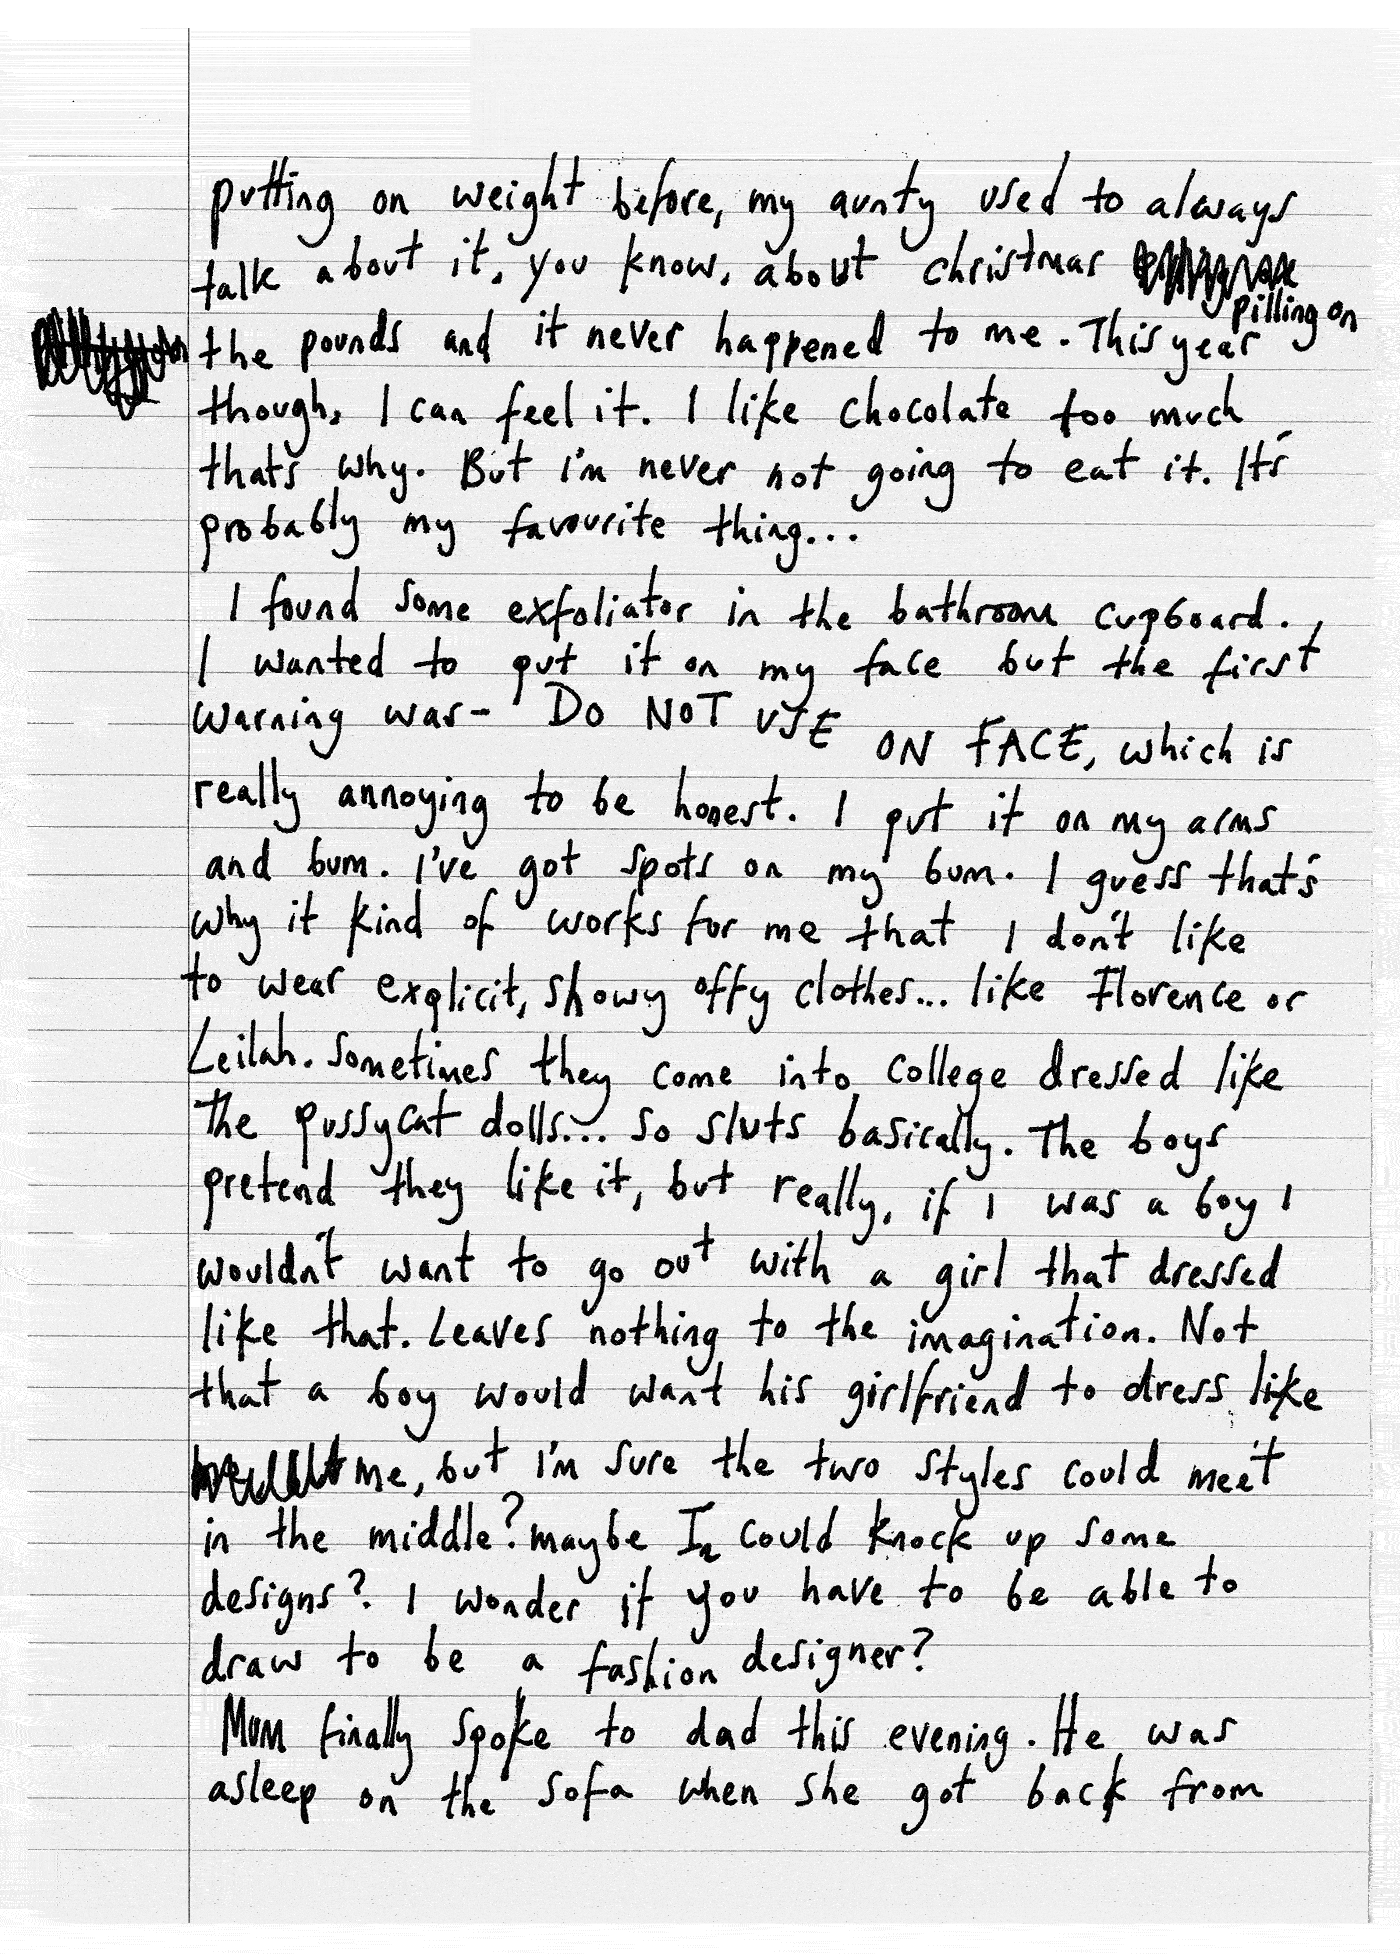 putting on weight before, my aunty used to always
talk about it, you know, about christmas
pilling on
the pounds and it never happened to me. This year
though, I can feel it. I like chocolate too much
that's why. But i'm never not going to eat it. It's
probably my favourite thing...
I found some exfoliator in the bathroom cupboard.
I wanted to put it on my face but the first
warning was- DO NOT USE ON FACE, which is
really annoying to be honest. I put it on my arms
and bum. I've got spots on my bum. I guess that's
why it kind of works for me that I don't like
to wear explicit, showy offy clothes... like Florence or
Leilah. Sometimes they come into college dressed like
The pussycat dolls... So sluts basically. The boys
pretend they like it, but really, if I was a boy I
wouldn't want to go out with a girl that dressed
like that. Leaves nothing to the imagination. Not
that a boy would want his girlfriend to dress like
me, but i'm sure the two styles could meet
in the middle? maybe I could knock up some
designs? I wonder if you have to be able to
draw to be a fashion designer?
Mum finally spoke to dad this evening. He was
asleep on the sofa when she got back from